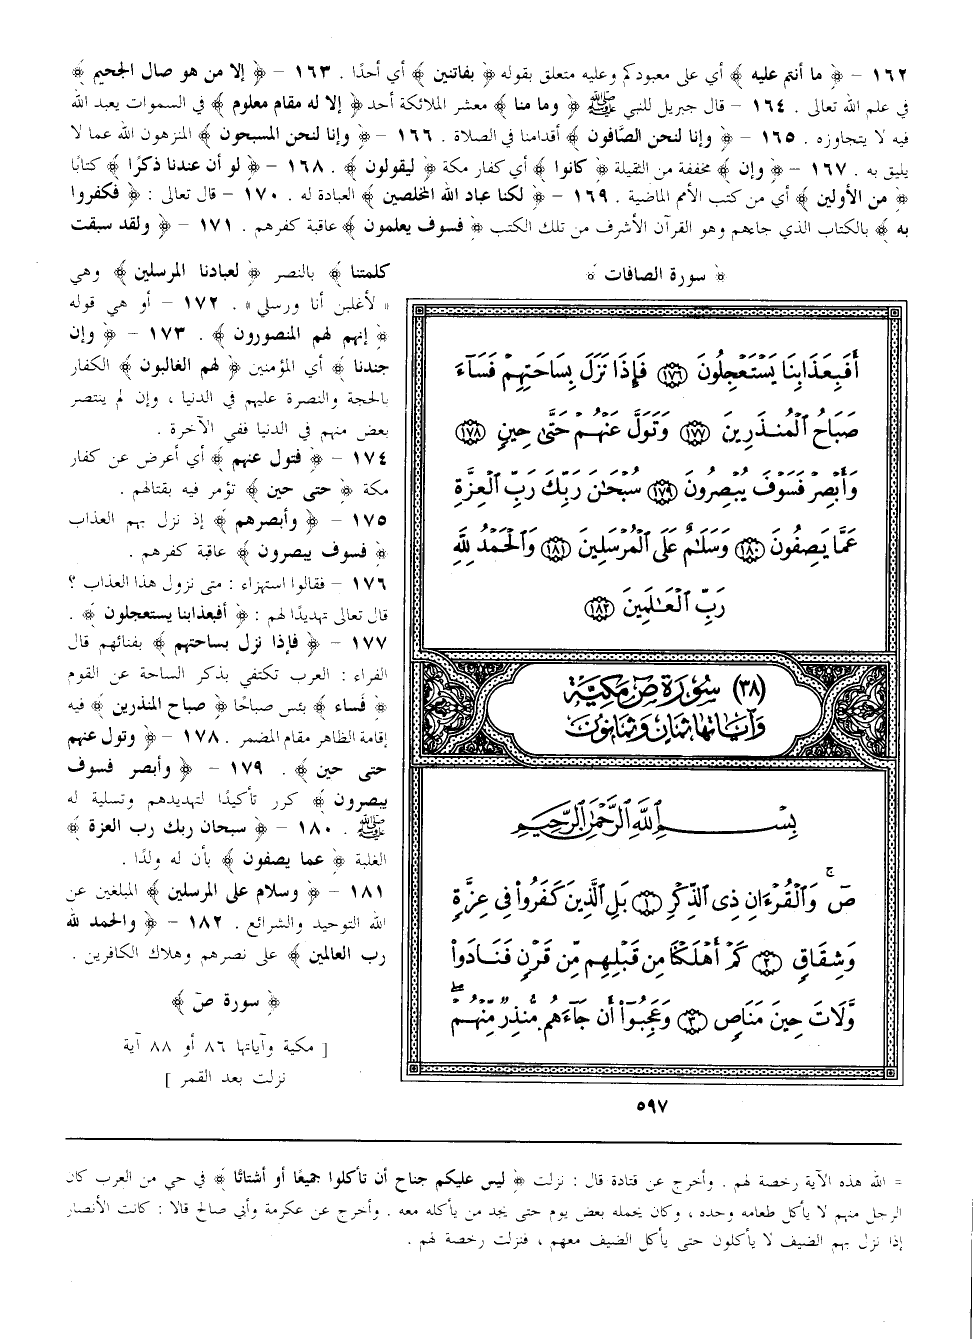 ١٦٢ – ﴿ ما أنتم عليه ﴾ أي على معبودكم وعليه متعلق بقوله ﴿ بفاتنين ﴾ أي أحدًا . ١٦٣ – ﴿ إلا من هو صال الجحيم ﴾
في علم الله تعالى . ١٦٤ – قال جبريل للنبي ﷺ ﴿ وما منا ﴾ معشر الملائكة أحد ﴿ إلا له مقام معلوم ﴾ في السموات يعبد الله
فيه لا يتجاوزه . ١٦٥ – ﴿ وإنا لنحن الصّافون ﴾ أقدامنا في الصلاة . ١٦٦ – ﴿ وإنا لنحن المسبحون ﴾ المنزهون الله عما لا
يليق به . ١٦٧ – ﴿ وإن ﴾ مخففة من الثقيلة ﴿ كانوا ﴾ أي كفار مكة ﴿ ليقولون ﴾ . ١٦٨ – ﴿ لو أن عندنا ذكرًا ﴾ كتابًا
﴿ من الأولين ﴾ أي من كتب الأمم الماضية . ١٦٩ – ﴿ لكنا عباد الله المخلصين ﴾ العبادة له . ١٧٠ – قال تعالى : ﴿ فكفروا
به ﴾ بالكتاب الذي جاءهم وهو القرآن الأشرف من تلك الكتب ﴿ فسوف يعلمون ﴾ عاقبة كفرهم . ١٧١ – ﴿ ولقد سبقت
﴿ سورة الصافات ﴾
أَفَبِعَذَابِنَا يَسْتَعْجِلُونَ ١٧٦ فَإِذَا نَزَلَ بِسَاحَتِهِمْ فَسَآءَ
صَبَاحُ ٱلْمُنذَرِينَ ١٧٧ وَتَوَلَّ عَنْهُمْ حَتَّىٰ حِينٍ ١٧٨
وَأَبْصِرْ فَسَوْفَ يُبْصِرُونَ ١٧٩ سُبْحَٰنَ رَبِّكَ رَبِّ ٱلْعِزَّةِ
عَمَّا يَصِفُونَ ١٨٠ وَسَلَٰمٌ عَلَى ٱلْمُرْسَلِينَ ١٨١ وَٱلْحَمْدُ لِلَّهِ
رَبِّ ٱلْعَٰلَمِينَ ١٨٢
(٣٨) سُورَة ص مَكِيَّة
وَآيَاتها ثمَانٍ وَثمَانونَ
بِسْمِ ٱللَّهِ ٱلرَّحْمَٰنِ ٱلرَّحِيمِ
صٓ ۚ وَٱلْقُرْءَانِ ذِى ٱلذِّكْرِ ١ بَلِ ٱلَّذِينَ كَفَرُوا۟ فِى عِزَّةٍ
وَشِقَاقٍ ٢ كَمْ أَهْلَكْنَا مِن قَبْلِهِم مِّن قَرْنٍ فَنَادَوا۟
وَّلَاتَ حِينَ مَنَاصٍ ٣ وَعَجِبُوٓا۟ أَن جَآءَهُم مُّنذِرٌ مِّنْهُمْ ۖ
٥٩٧
كلمتنا ﴾ بالنصر ﴿ لعبادنا المرسلين ﴾ وهي
« لأغلبن أنا ورسلي » . ١٧٢ – أو هي قوله
﴿ إنهم لهم المنصورون ﴾ . ١٧٣ – ﴿ وإن
جندنا ﴾ أي المؤمنين ﴿ لهم الغالبون ﴾ الكفار
بالحجة والنصرة عليهم في الدنيا ، وإن لم ينتصر
بعض منهم في الدنيا ففي الآخرة .
١٧٤ – ﴿ فتول عنهم ﴾ أي أعرض عن كفار
مكة ﴿ حتى حين ﴾ تؤمر فيه بقتالهم .
١٧٥ – ﴿ وأبصرهم ﴾ إذ نزل بهم العذاب
﴿ فسوف يبصرون ﴾ عاقبة كفرهم .
١٧٦ – فقالوا استهزاء : متى نزول هذا العذاب ؟
قال تعالى تهديدًا لهم : ﴿ أفبعذابنا يستعجلون ﴾ .
١٧٧ – ﴿ فإذا نزل بساحتهم ﴾ بفنائهم قال
الفراء : العرب تكتفي بذكر الساحة عن القوم
﴿ فساء ﴾ بئس صباحًا ﴿ صباح المنذرين ﴾ فيه
إقامة الظاهر مقام المضمر . ١٧٨ – ﴿ وتول عنهم
حتى حين ﴾ . ١٧٩ – ﴿ وأبصر فسوف
يبصرون ﴾ كرر تأكيدًا لتهديدهم وتسلية له
ﷺ . ١٨٠ – ﴿ سبحان ربك رب العزة ﴾
الغلبة ﴿ عما يصفون ﴾ بأن له ولدًا .
١٨١ – ﴿ وسلام على المرسلين ﴾ المبلغين عن
الله التوحيد والشرائع . ١٨٢ – ﴿ والحمد لله
رب العالمين ﴾ على نصرهم وهلاك الكافرين .
﴿ سورة صٓ ﴾
[ مكية وآياتها ٨٦ أو ٨٨ آية
نزلت بعد القمر ]
= الله هذه الآية رخصة لهم . وأخرج عن قتادة قال : نزلت ﴿ ليس عليكم جناح أن تأكلوا جميعًا أو أشتاتًا ﴾ في حي من العرب كان
الرجل منهم لا يأكل طعامه وحده ، وكان يحمله بعض يوم حتى يجد من يأكله معه . وأخرج عن عكرمة وأبي صالح قالا : كانت الأنصار
إذا نزل بهم الضيف لا يأكلون حتى يأكل الضيف معهم ، فنزلت رخصة لهم .